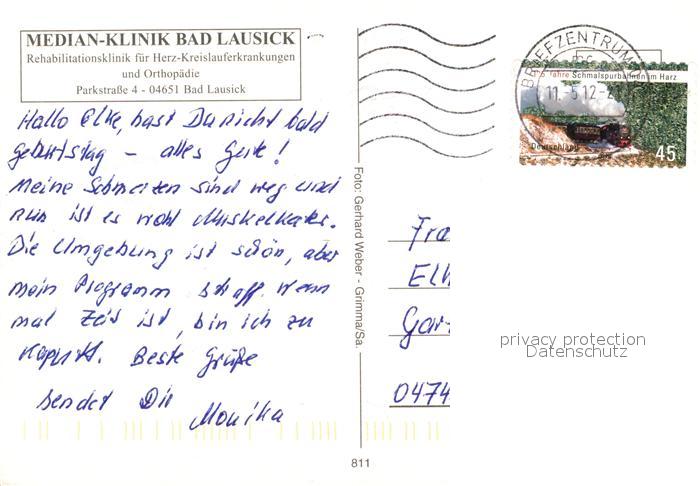 MEDIAN-KLINIK BAD LAUSICK
Rehabilitationsklinik für Herz-Kreislauferkrankungen
und Orthopädie
Parkstraße 4 - 04651 Bad Lausick
Hallo Elke, hast Du nicht bald
Geburtstag – alles Gute!
Meine Schmerzen sind weg und
nun ist es wohl Muskelkater.
Die Umgebung ist schön, aber
mein Programm straff. Wenn
mal Zeit ist, bin ich zu
kaputt. Beste Grüße
sendet Dir
Monika
Foto: Gerhard Weber - Grimma/Sa.
811
BRIEFZENTRUM
11.-5.12-2
Jahre Schmalspurbahnen im Harz
Deutschland
45
Fra
Elk
Gar
0474
privacy protection
Datenschutz